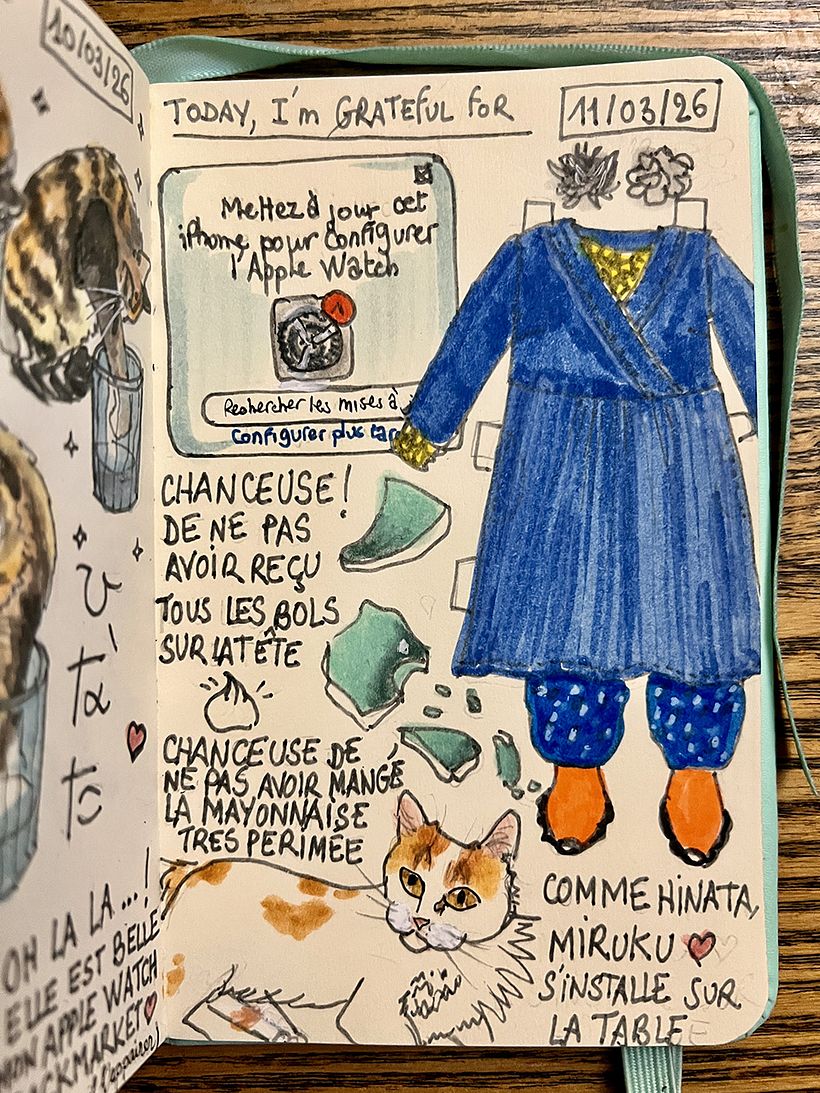 10/03/26
ひなた
OH LA LA...!
ELLE EST BELLE
MON APPLE WATCH
BACKMARKET
TODAY, I'm GRATEFUL FOR
11/03/26
Mettez à jour cet
iPhone pour configurer
l'Apple Watch
1
Rechercher les mises à
Configurer plus tar
CHANCEUSE!
DE NE PAS
AVOIR REÇU
TOUS LES BOLS
SUR LA TÊTE
CHANCEUSE DE
NE PAS AVOIR MANGÉ
LA MAYONNAISE
TRES PERIMÉE
COMME HINATA,
MIRUKU
S'INSTALLE SUR
LA TABLE